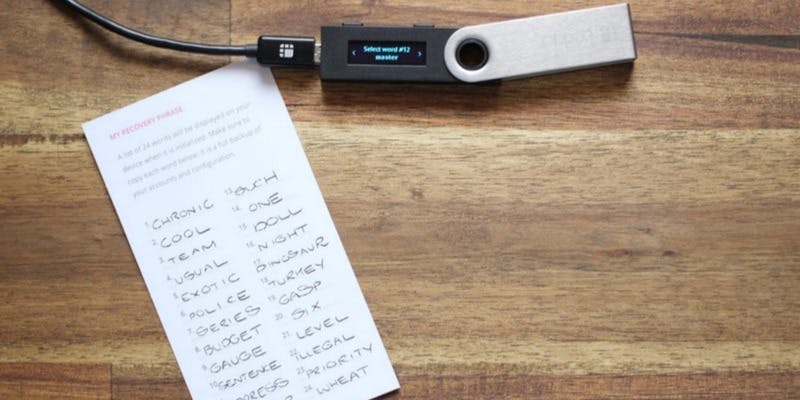 Select word #12
master
MY RECOVERY PHRASE
A list of 24 words will be displayed on your
device when it is initialized. Make sure to
copy each word below. It is a full backup of
your accounts and configuration.
1. CHRONIC
2. COOL
3. TEAM
4. USUAL
5. EXOTIC
6. POLICE
7. SERIES
8. BUDGET
9. GAUGE
10. SENTENCE
13. SUCH
14. ONE
15. DOLL
16. NIGHT
17. DINOSAUR
18. TURKEY
19. GASP
20. SIX
21. LEVEL
22. ILLEGAL
23. PRIORITY
24. WHEAT